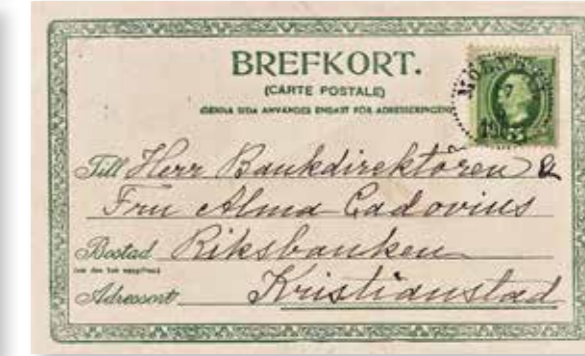 BREFKORT.
(CARTE POSTALE)
(DENNA SIDA ANVÄNDES ENDAST FÖR ADRESSERINGEN)
Till Herr Bankdirektören &
Fru Alma Cadovius
Bostad Riksbanken
Adressort Kristianstad
5